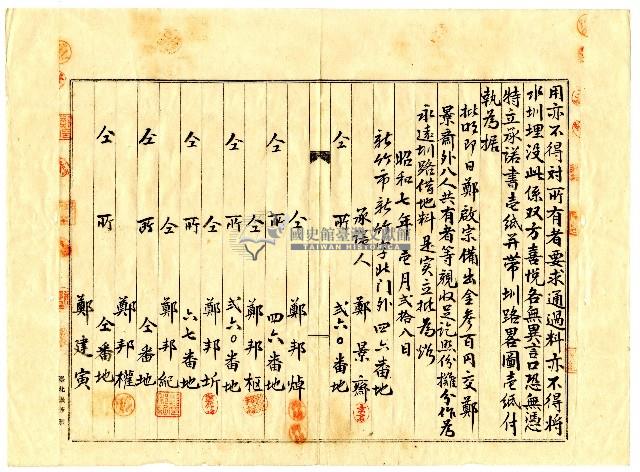 用亦不得対所有者要求通過料亦不得將
水圳埋没此係双方喜悦各無異言口恐無憑
特立承諾書壱紙并帶圳路畧圖壱紙付
執為据
批明即日鄭啟宗備出金参百円交鄭
景齋外八人共有者等親收足訖照份攤分作為
永遠圳路借地料是実立批為炤
昭和七年壱月弍拾八日
新竹市新竹字北门外四六番地
承諾人 鄭景齋
仝所 弍六〇番地
仝 鄭邦焯
仝所 四六番地
仝 鄭邦枢
仝所 弍六〇番地
仝 鄭邦圻
仝所 六七番地
仝 鄭邦紀
仝所 仝番地
鄭邦權
仝所 仝番地
鄭建寅
國史館臺灣文獻館
TAIWAN HISTORICA